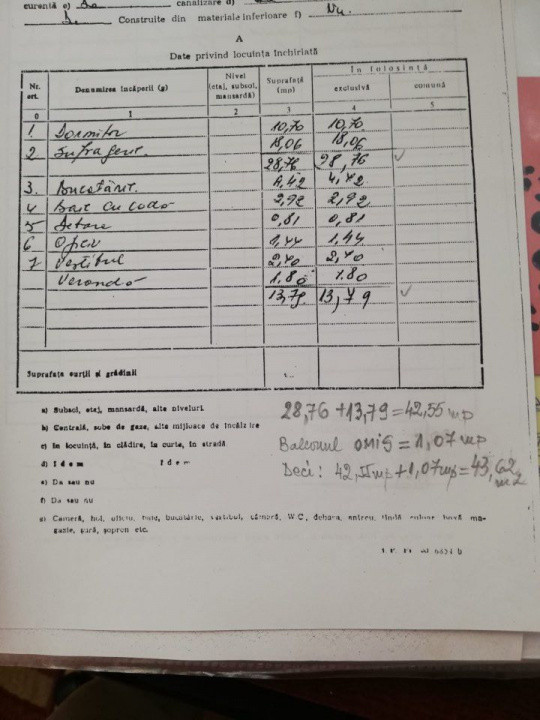 curentă e) Da canalizare d)
Da Construite din materiale inferioare f) Nu.
A
Date privind locuința închiriată
Nr. ert. Denumirea încăperii (g) Nivel (etaj, subsol, mansardă) Suprafață (mp) În folosință
exclusivă comună
0 1 2 3 4 5
1. Dormitor 10,70 10,70
2. Sufragerie. 18,06 18,06
28,76 28,76 ✓
3. Bucătărie. 4,42 4,42
4 Baie cu ladă 2,92 2,92
5 Debara 0,81 0,81
6 Oficiu 1,44 1,44
7 Vestibul 2,40 2,40
Verandă 1.80 1.80
13,79 13,79 ✓
Suprafața curții și grădinii
a) Subsol, etaj, mansardă, alte niveluri.
b) Centrală, sobe de gaze, alte mijloace de încălzire
c) În locuință, în clădire, în curte, în stradă
d) Idem Idem
e) Da sau nu
f) Da sau nu
g) Cameră, hol, oficiu, baie, bucătărie, vestibul, cămară, W.C., debara, antreu, tindă, magazie, șură, șopron etc.
28,76 + 13,79 = 42,55 mp
Balconul OMIS = 1,07 mp
Deci: 42,55 mp + 1,07 mp = 43,62 m2